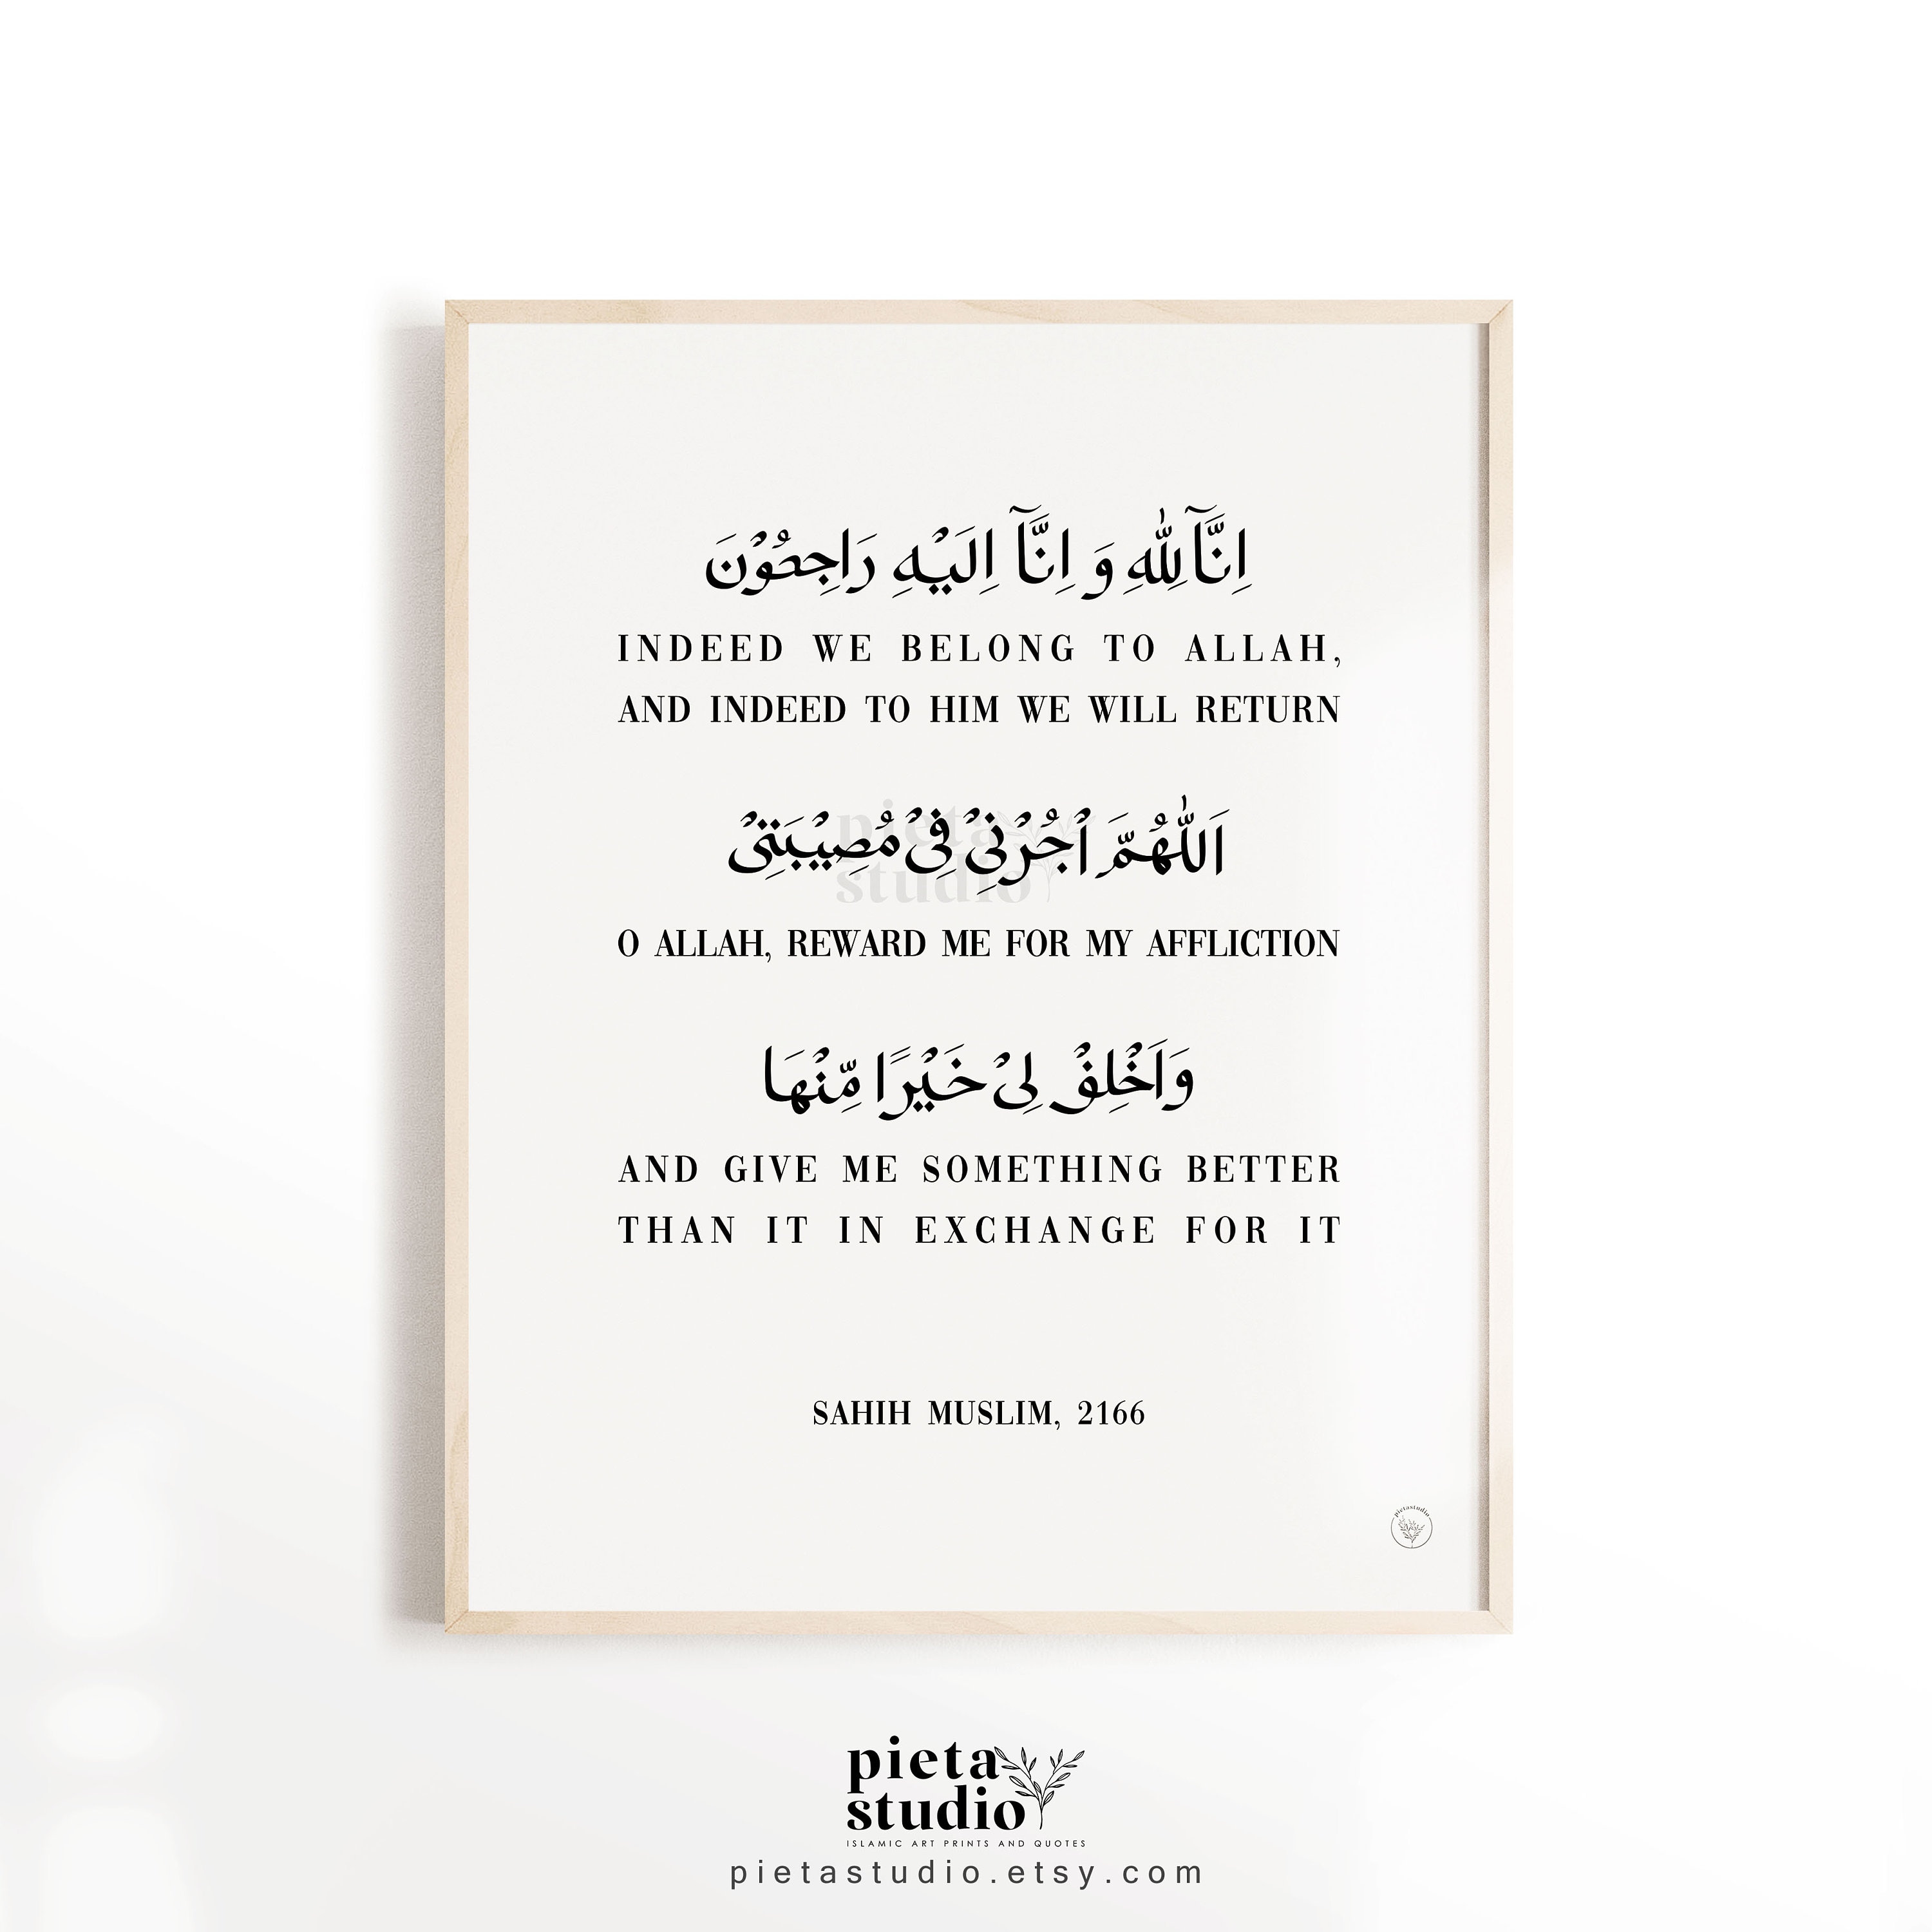 اِنَّآلِلّٰهِ وَ اِنَّآ اِلَيْهِ رَاجِعُوْنَ
INDEED WE BELONG TO ALLAH,
AND INDEED TO HIM WE WILL RETURN
اَللّٰهُمَّ اْجُرْنِىْ فِىْ مُصِيْبَتِىْ
pieta
studio
O ALLAH, REWARD ME FOR MY AFFLICTION
وَاَخْلِفْ لِىْ خَيْرًا مِّنْهَا
AND GIVE ME SOMETHING BETTER
THAN IT IN EXCHANGE FOR IT
SAHIH MUSLIM, 2166
pietastudio
pieta
studio
ISLAMIC ART PRINTS AND QUOTES
pietastudio.etsy.com